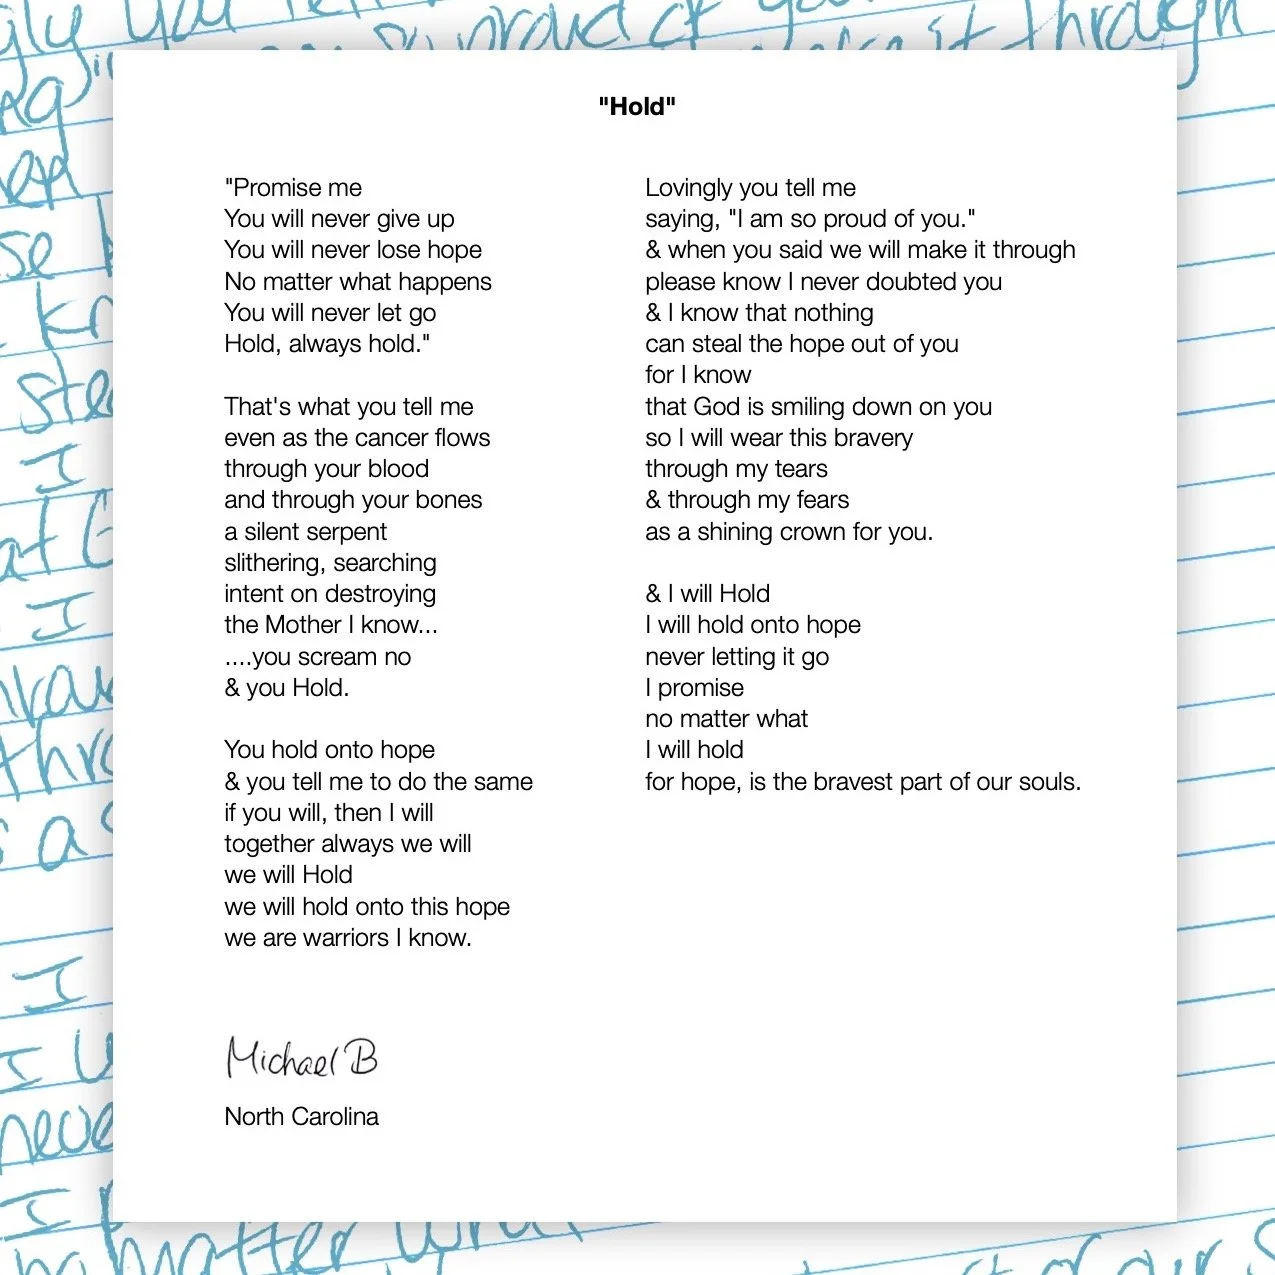 "Hold"
"Promise me
You will never give up
You will never lose hope
No matter what happens
You will never let go
Hold, always hold."
That's what you tell me
even as the cancer flows
through your blood
and through your bones
a silent serpent
slithering, searching
intent on destroying
the Mother I know...
....you scream no
& you Hold.
You hold onto hope
& you tell me to do the same
if you will, then I will
together always we will
we will Hold
we will hold onto this hope
we are warriors I know.
Lovingly you tell me
saying, "I am so proud of you."
& when you said we will make it through
please know I never doubted you
& I know that nothing
can steal the hope out of you
for I know
that God is smiling down on you
so I will wear this bravery
through my tears
& through my fears
as a shining crown for you.
& I will Hold
I will hold onto hope
never letting it go
I promise
no matter what
I will hold
for hope, is the bravest part of our souls.
Michael B
North Carolina